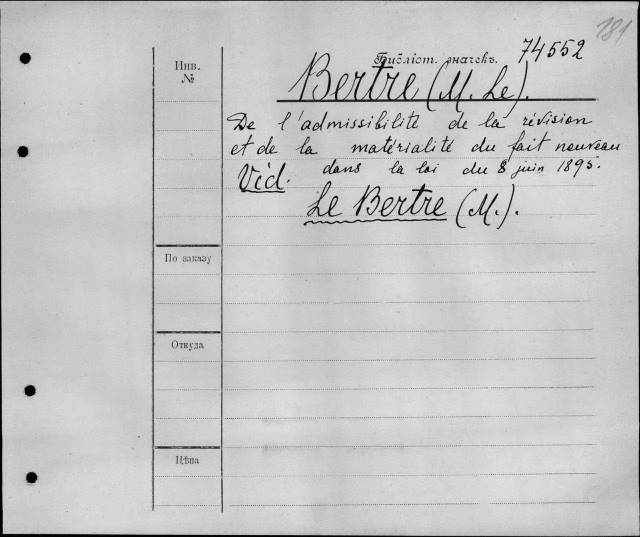 181
74552
Инв.
№
Библіот. значекъ.
Bertre (M. Le).
De l'admissibilité de la révision
et de la matérialité du fait nouveau
dans la loi du 8 juin 1895.
Vid.
Le Bertre (M.).
По заказу
Откуда
Цѣна